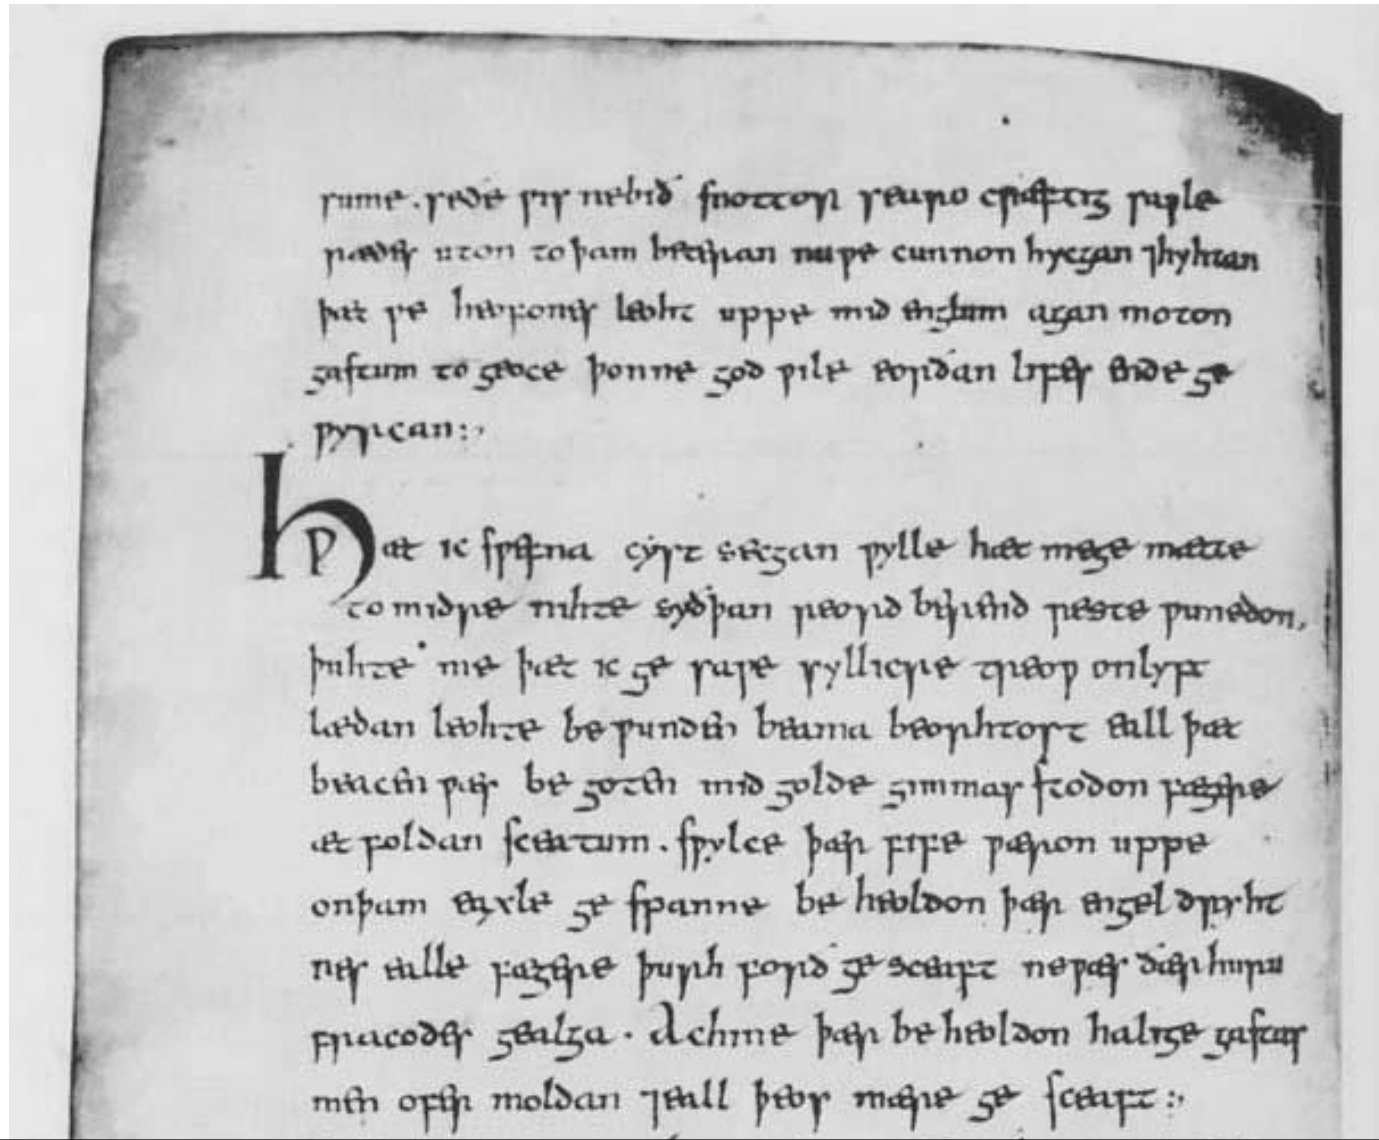 sume . seðe ƿis nebið snottor searo cræftig saƿle
rædes uton to þam beteran nuƿe cunnon hycgan ⁊hyhtan
þæt ƿe heofones leoht uppe mid englum agan moton
gastum to geoce þonne god ƿile eorðan lifes ende ge
ƿyrican:,
Hƿæt ic sƿefna cyst secgan ƿylle hæt mege mætte
to midre nihte syðþan reord berend reste ƿunedon,
þuhte me þæt ic ge saƿe syllicre treoƿ onlyft
lædan leohte be ƿunden beama beorhtost eall þæt
beacen ƿæs be goten mid golde gimmas stodon fægere
æt foldan sceatum . sƿylce þær fife ƿæron uppe
onþam eaxle ge spanne be heoldon þær engel dryht
nes ealle fægere þurh forð ge sceaft neƿæs ðær huru
fracodes gealga . Achine þær be heoldon halige gastas
men ofer moldan ⁊eall þeos mære ge sceaft :,